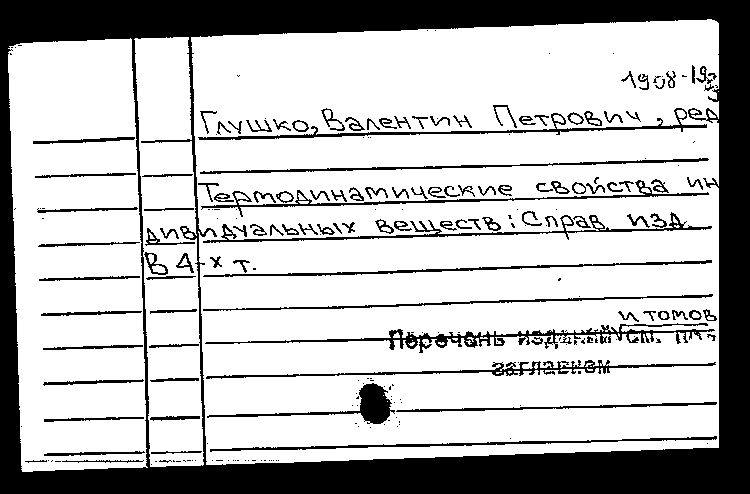 1908-19
Глушко, Валентин Петрович, ред
Термодинамические свойства ин
дивидуальных веществ: Справ. изд.
В 4-х т.
и томов
Перечень изданий см. под
заглавием